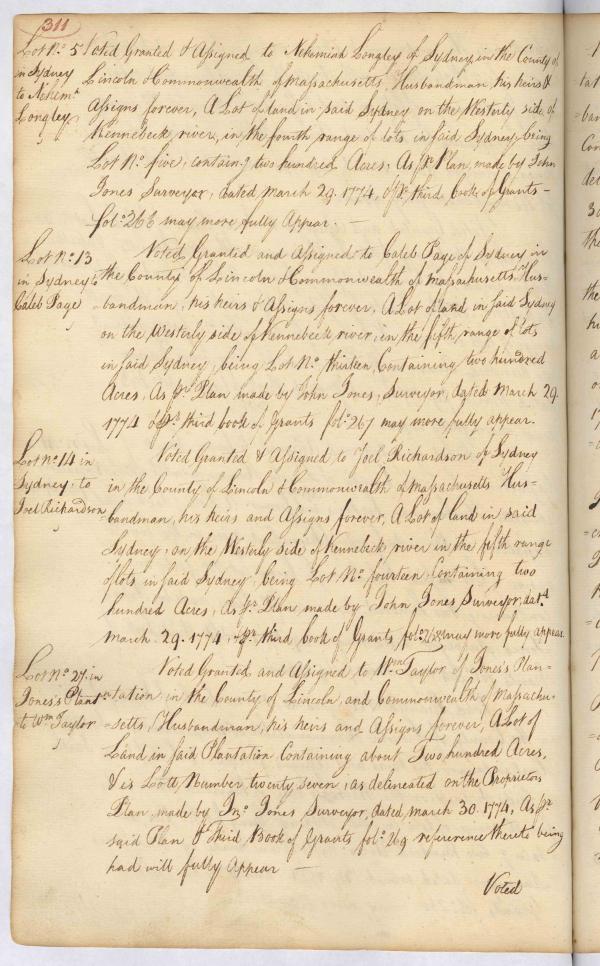 311
Lot No. 5
in Sydney
to Nehemh
Longley
Voted Granted & Assigned to Nehemiah Longley of Sydney, in the County of
Lincoln & Commonwealth of Massachusetts, Husbandman, his heirs &
Assigns forever, A Lot of land in said Sydney on the Westerly side of
Kennebeck river, in the fourth range of lots in said Sydney, being
Lot No. five, containg two hundred Acres, As Pr Plan made by John
Jones Surveyor, dated March 29. 1774, & Pr third book of Grants -
folo. 266 may more fully Appear. —
Lot No. 13
in Sydney to
Caleb Page
Voted, Granted and Assigned to Caleb Page of Sydney in
the County of Lincoln & Commonwealth of Massachusetts Hus-
-bandman, his heirs & Assigns forever, A Lot of land in said Sydney
on the Westerly side of Kennebeck river, in the fifth range of lots
in said Sydney, being Lot No. thirteen, Containing two hundred
Acres, As Pr Plan made by John Jones, Surveyor, dated March 29.
1774 & Pr third book of Grants folo. 267 may more fully appear.
Lot No. 14 in
Sydney, to
Joel Richardson
Voted Granted & Assigned to Joel Richardson of Sydney
in the County of Lincoln & Commonwealth of Massachusetts Hus-
-bandman, his heirs and Assigns forever, A Lot of land in said
Sydney, on the Westerly side of Kennebeck river in the fifth range
of lots in said Sydney being Lot No. fourteen, Containing two
hundred Acres, As Pr Plan made by John Jones Surveyor, datd
March. 29. 1774, & Pr third book of Grants folo. 268 may more fully appear
Lot No. 27. in
Jones's Plant
to Wm Taylor
Voted Granted and Assigned to Wm Taylor of Jones's Plan-
-tation in the County of Lincoln, and Commonwealth of Massachu-
-setts, Husbandman, his heirs and Assigns forever, A Lot of
Land in said Plantation Containing about Two hundred Acres,
& is Lott Number twenty seven, as delineated on the Proprietors
Plan, made by Jno. Jones Surveyor, dated, March 30. 1774, As Pr
said Plan & Third Book of Grants folo. 269 reference thereto being
had will fully Appear —
Voted